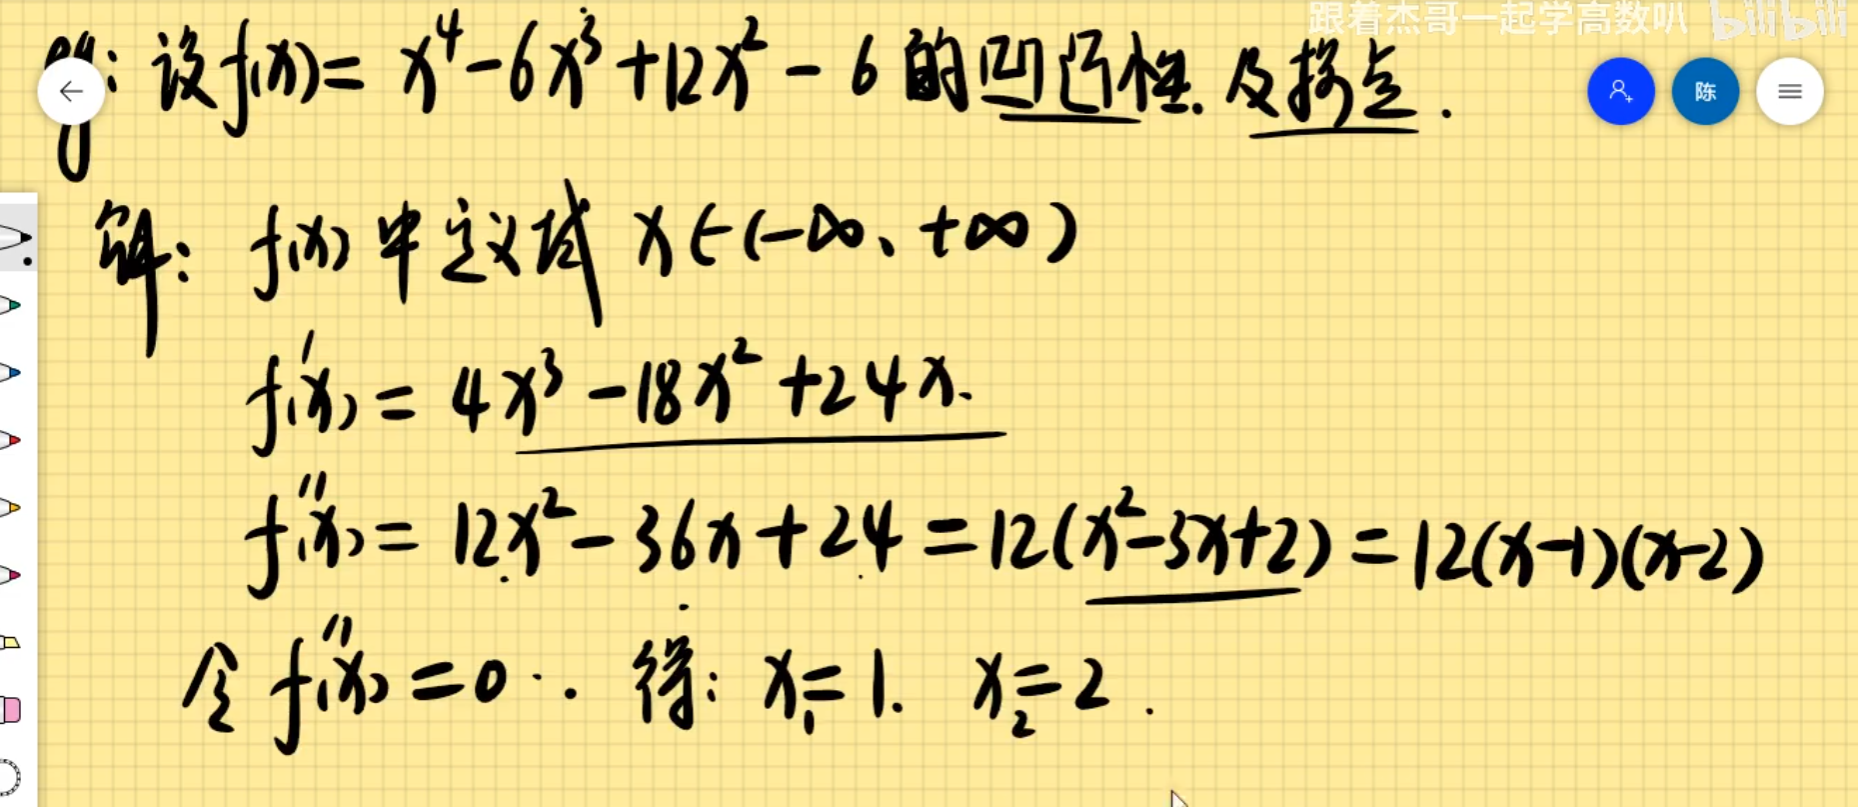 跟着杰哥一起学高数叭 bilibili
例: 设f(x)= x⁴-6x³+12x²-6 的凹凸性.及拐点.
陈
解: f(x)中定义域 x∈(-∞、+∞)
f'(x)= 4x³-18x²+24x.
f''(x)= 12x²-36x+24=12(x²-3x+2)=12(x-1)(x-2)
令 f''(x)=0. 得: x₁=1. x₂=2.